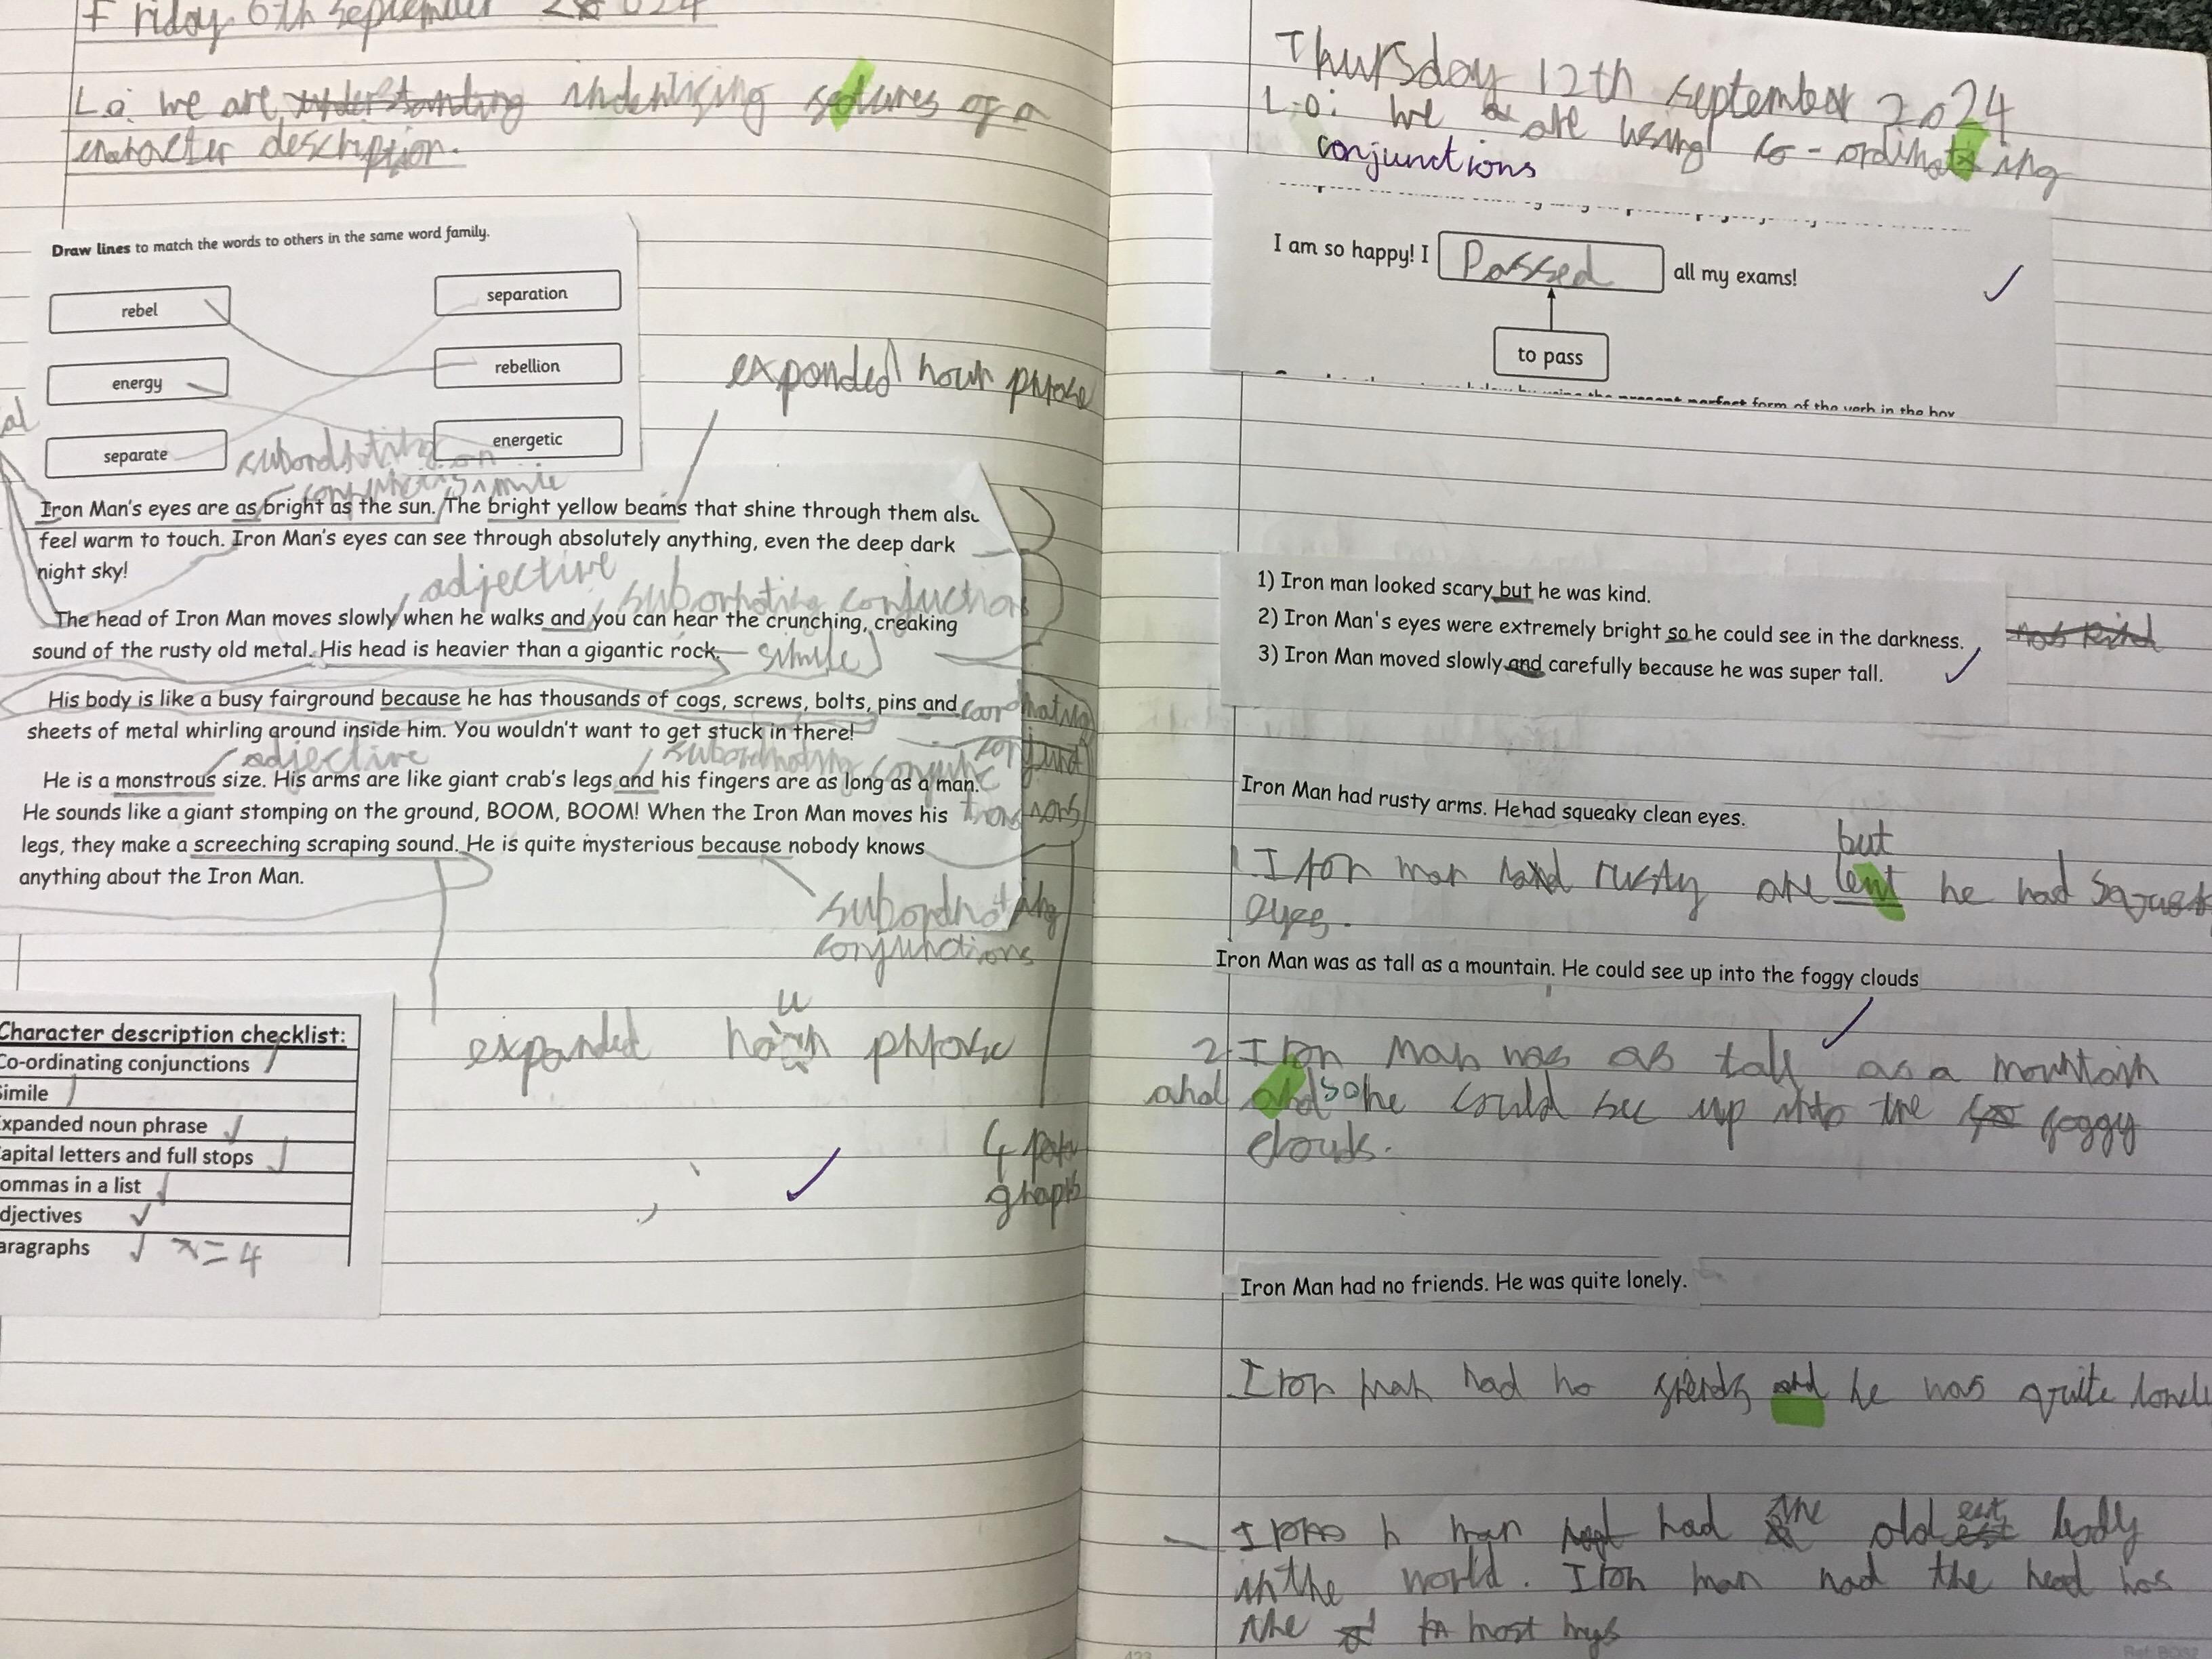 Friday 6th September 2024
L.o: we are understanding indentifising features of a
character description.
Draw lines to match the words to others in the same word family.
rebel
separation
energy
rebellion
separate
energetic
expanded noun phrase
simile
Iron Man's eyes are as bright as the sun. The bright yellow beams that shine through them also
feel warm to touch. Iron Man's eyes can see through absolutely anything, even the deep dark
night sky!
adjective
The head of Iron Man moves slowly when he walks and you can hear the crunching, creaking
sound of the rusty old metal. His head is heavier than a gigantic rock.
simile
His body is like a busy fairground because he has thousands of cogs, screws, bolts, pins and
sheets of metal whirling around inside him. You wouldn't want to get stuck in there!
adjective
He is a monstrous size. His arms are like giant crab's legs and his fingers are as long as a man.
He sounds like a giant stomping on the ground, BOOM, BOOM! When the Iron Man moves his
legs, they make a screeching scraping sound. He is quite mysterious because nobody knows
anything about the Iron Man.
subordnating
conjunctions
expanded noun phrase
Character description checklist:
Co-ordinating conjunctions
Simile
xpanded noun phrase
apital letters and full stops
ommas in a list
djectives
aragraphs x=4
4 para
graphs
Thursday 12th September 2024
L.O: We are using co-ordinating
conjunctions
I am so happy! I Passed all my exams!
to pass
present perfect form of the verb in the box
1) Iron man looked scary but he was kind.
2) Iron Man's eyes were extremely bright so he could see in the darkness.
3) Iron Man moved slowly and carefully because he was super tall.
Iron Man had rusty arms. Hehad squeaky clean eyes.
but
1 Iron man had rusty he had
eyes.
Iron Man was as tall as a mountain. He could see up into the foggy clouds
2. Iron Man was as tall as a mountain
and and so he could see up into the foggy
clouds.
Iron Man had no friends. He was quite lonely.
Iron man had no and he was quite lonely
man had the oldest body
in the world. Iron man had the head has
the most